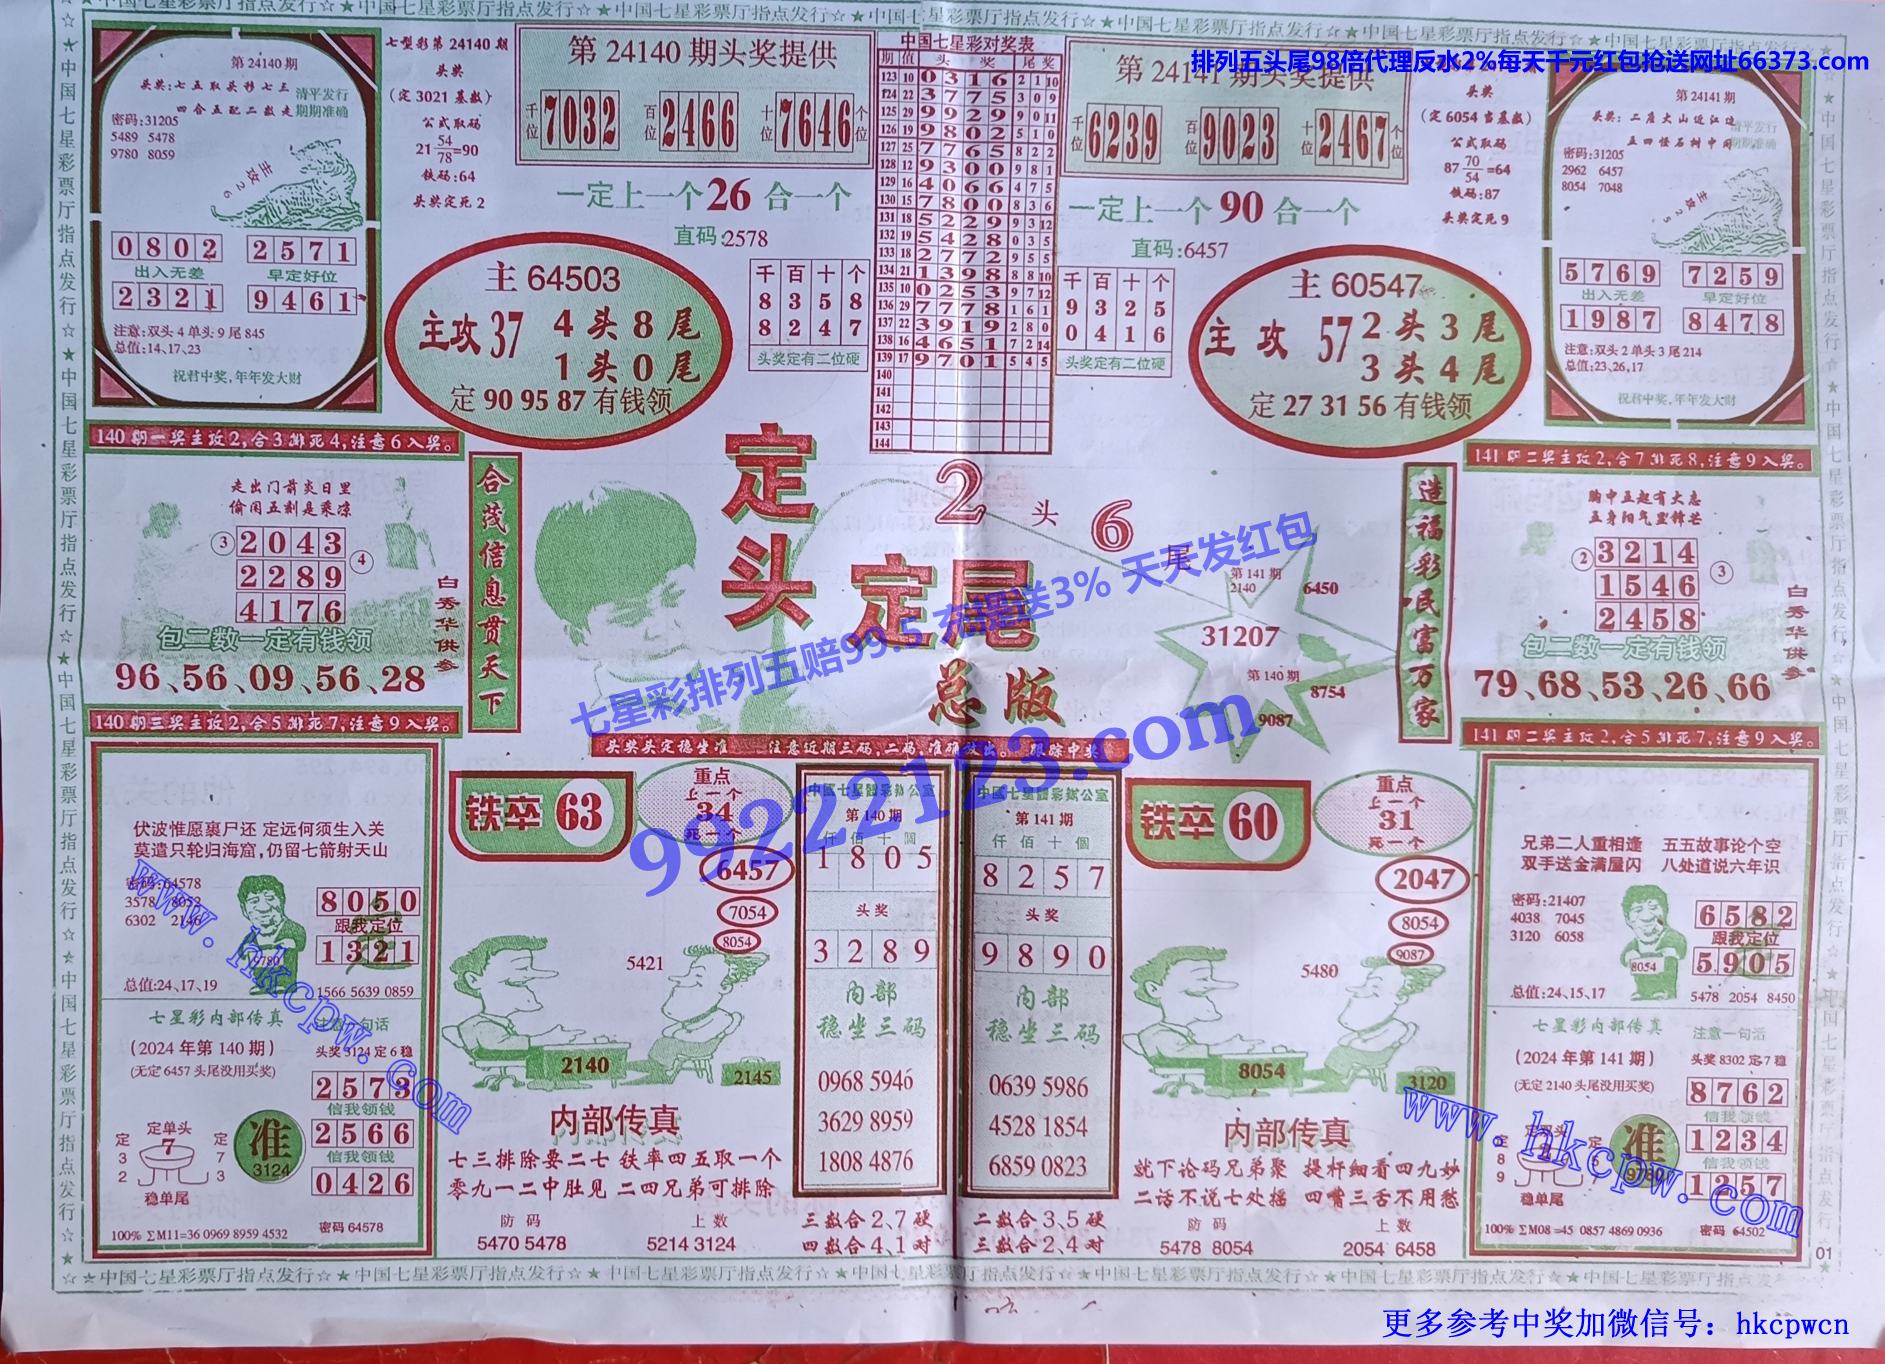 ☆★中国七星彩票厅指点发行☆★中国七星彩票厅指点发行☆★中国七星彩票厅指点发行☆★中国七星彩票厅指点发行
排列五头尾98倍代理反水2%每天千元红包抢送网址66373.com
第24140期
头奖:七五取头移七三
四合五配二数走
清平发行
期期准确
密码:31205
5489 5478
9780 8059
主攻26
0802 2571
出入无差 早定好位
2321 9461
注意:双头4单头9尾845
总值:14、17、23
祝君中奖,年年发大财
七型彩第24140期
头奖
(定3021基数)
公式取码
21 54/78=90
铁码:64
头奖定死2
第24140期头奖提供
千位 7032 百位 2466 十位 7646 个位
一定上一个26合一个
直码:2578
主64503
主攻37 4头8尾
1头0尾
定909587有钱领
千百十个
8358
8247
头奖定有二位硬
中国七星彩对奖表
期 值 头奖 尾奖
123 10 0316 2 1 10
124 22 3775 3 0 9
125 29 9929 9 0 11
126 19 9802 5 1 0
127 25 7765 8 2 2
128 12 9300 9 8 1
129 16 4066 4 7 5
130 15 7800 8 3 6
131 18 5229 9 3 12
132 19 5428 0 3 5
133 18 2772 9 5 5
134 21 1398 8 8 10
135 10 0253 9 7 12
136 29 7778 1 6 1
137 22 3919 2 8 0
138 16 4651 7 2 14
139 17 9701 5 4 5
140
141
142
143
144
第24141期头奖提供
千位 6239 百位 9023 十位 2467 个位
一定上一个90合一个
直码:6457
千百十个
9325
0416
头奖定有二位硬
主60547
主攻57 2头3尾
3头4尾
定273156有钱领
头奖
(定6054当基数)
公式取码
87 70/54=64
铁码:87
头奖定死9
第24141期
头奖:二座大山近江边
五四怪石树中间
清平发行
期期准确
密码:31205
2962 6457
8054 7048
5769 7259
出入无差 早定好位
1987 8478
注意:双头2单头3尾214
总值:23、26、17
祝君中奖,年年发大财
140期一奖主攻2,合3排死4,注意6入奖。
走出门前炎日里
偷闲五刻是乘凉
③ 2043 ④
2289
4176
包二数一定有钱领
96、56、09、56、28
白秀华供参
合茂信息贯天下
定头
定尾
总版
2头6尾
第141期
2140
6450
31207
第140期
8754
9087
造福彩民富万家
141期二奖主攻2,合7排死8,注意9入奖。
胸中五起有大志
五身阳气显锋芒
② 3214 ③
1546
2458
包二数一定有钱领
79、68、53、26、66
白秀华供参
七星彩排列五赔99.5 充提送3% 天天发红包
99222123.com
140期三奖主攻2,合5排死7,注意9入奖。
伏波惟愿裹尸还 定远何须生入关
莫遣只轮归海窟,仍留七箭射天山
密码:64578
3578 8052
6302 2146
9780
8050
跟我定位
1321
总值:24、17、19
1566 5639 0859
七星彩内部传真 注意一句话
(2024年第140期) 头奖3124定6稳
(无定6457头尾没用买奖)
2573
信我领钱
2566
信我领钱
0426
定单头
7
定32 定73
稳单尾
准
3124
100% ΣM11=36 0969 8959 4532 密码 64578
www.hkcpw.com
头奖头定稳坐准 注意近期三码、二码,准确放出。 跟踪中奖
铁卒63
重点
上一个
34
死一个
6457
7054
8054
5421
2140
2145
内部传真
七三排除要二七 铁率四五取一个
零九一二中肚见 二四兄弟可排除
防码 上数
5470 5478 5214 3124
中國七星體彩辦公室
第140期
仟佰十個
1805
头奖
3289
内部
稳坐三码
0968 5946
3629 8959
1808 4876
三数合2、7硬
四数合4、1对
中國七星體彩辦公室
第141期
仟佰十個
8257
头奖
9890
内部
稳坐三码
0639 5986
4528 1854
6859 0823
二数合3、5硬
三数合2、4对
铁卒60
重点
上一个
31
死一个
2047
8054
9087
5480
8054
3120
内部传真
就下论码兄弟聚 提杆细看四九妙
二话不说七处摇 四嘴三舌不用愁
防码 上数
5478 8054 2054 6458
141期二奖主攻2,合5排死7,注意9入奖。
兄弟二人重相逢 五五故事论个空
双手送金满屋闪 八处道说六年识
密码:21407
4038 7045
3120 6058
8054
6582
跟我定位
5905
总值:24、15、17
5478 2054 8450
七星彩内部传真 注意一句话
(2024年第141期) 头奖8302定7稳
(无定2140头尾没用买奖)
8762
信我领钱
1234
信我领钱
1257
稳单尾
准
9780
100% ΣM08=45 0857 4869 0936 密码 64502
www.hkcpw.com
01
☆★中国七星彩票厅指点发行☆★中国七星彩票厅指点发行☆★中国七星彩票厅指点发行☆★中国七星彩票厅指点发行
更多参考中奖加微信号：hkcpwcn